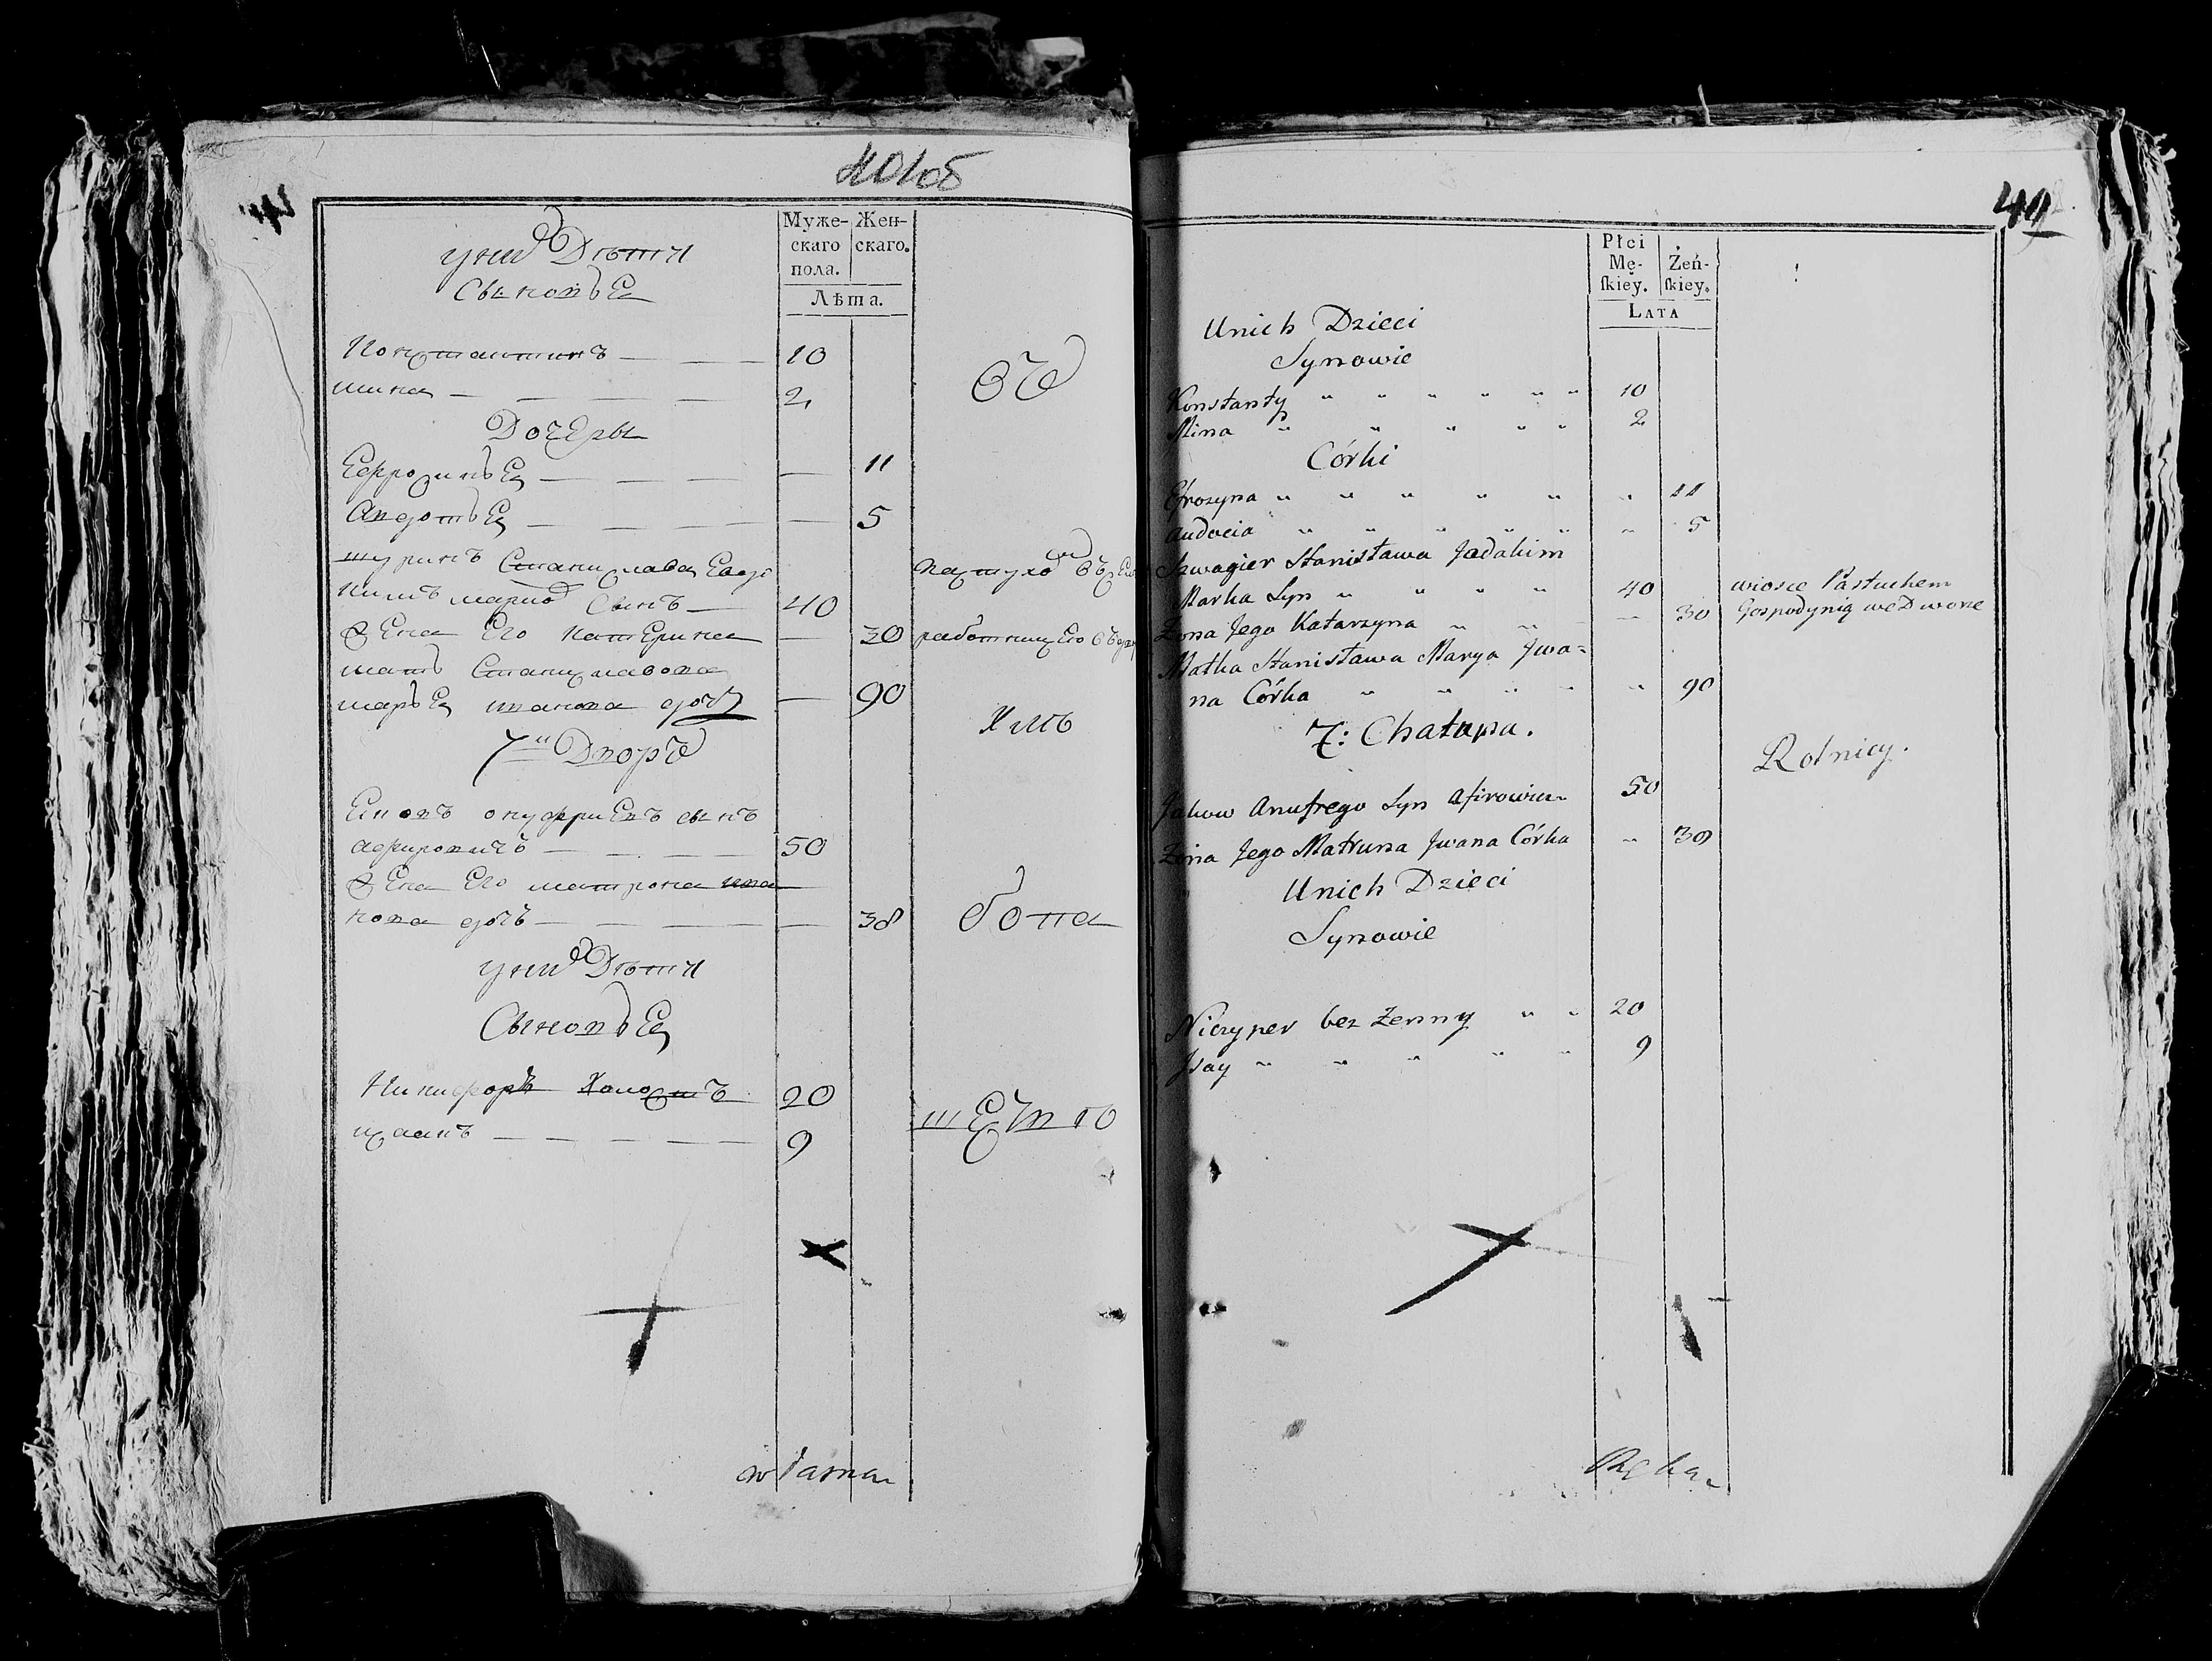 401об
Муже-
скаго
пола.
Жен-
скаго.
Лѣта.
уних Дѣти
Сыновья
Константинъ — — — 10
мина — — — — — 2
Дочеры
Ефросинья — — — — — 11
Авдотья — — — — — 5
шуринъ Станислава
марко Сынъ — 40
Жена Его Катерина — 30
мать Станиславова
марья иванова дочь — 90
7й Дворъ
Ековъ онуфриевъ сынъ
афировичъ — — — 50
Жена Его матрона ива
нова дочь — — — — — 38
уних Дѣти
Сыновья
Никифоръ Холостъ 20
исаакъ — — — — — 9
пастухъ
хлѣ
бопа
шество
własna
49
Płci
Mę-
ſkiey.
Żeń-
ſkiey.
LATA
Unich Dzieci
Synowie
Konstanty " " " " " " 10
Mina " " " " " 2
Córki
Efrozyna " " " " " " 11
Audocia " " " " " " 5
Szwagier Stanisława Jadakim
Marka Syn " " " " 40 wiosce Pastuchem
Żona Jego Katarzyna " " " 30 Gospodynią we Dworze
Matka Stanisława Marya Jwa=
na Córka " " " " " 90
7: Chałupa.
Rolnicy.
Jakow Anufrego Syn Afirowicz 50
Żona Jego Matruna Jwana Córka " 38
Unich Dzieci
Synowie
Niczyper bez Żenny " " 20
Jsay " " " " " 9
Ręka